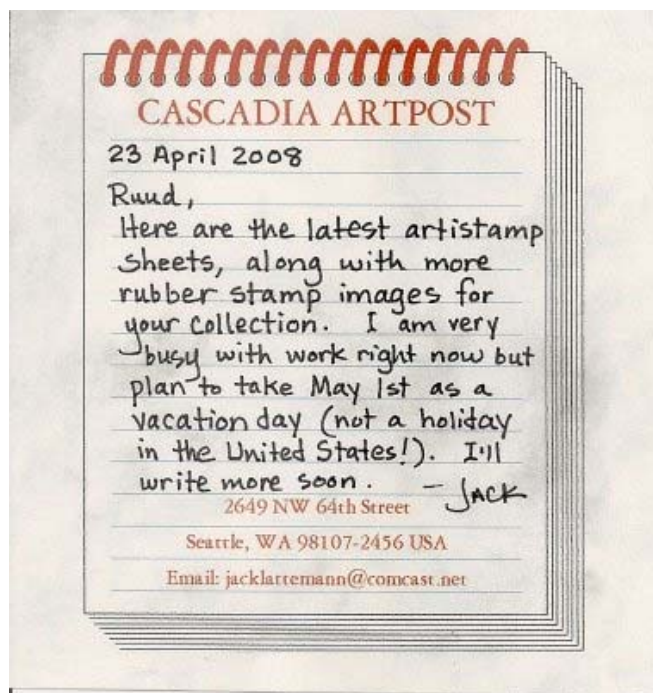 CASCADIA ARTPOST
23 April 2008
Ruud,
Here are the latest artistamp
sheets, along with more
rubber stamp images for
your collection. I am very
busy with work right now but
plan to take May 1st as a
vacation day (not a holiday
in the United States!). I'll
write more soon. - JACK
2649 NW 64th Street
Seattle, WA 98107-2456 USA
Email: jacklattemann@comcast.net